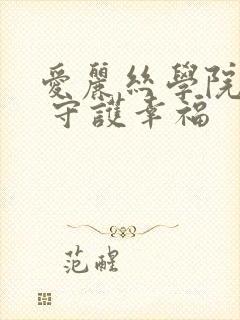 愛麗絲學院
守護幸福
范醒